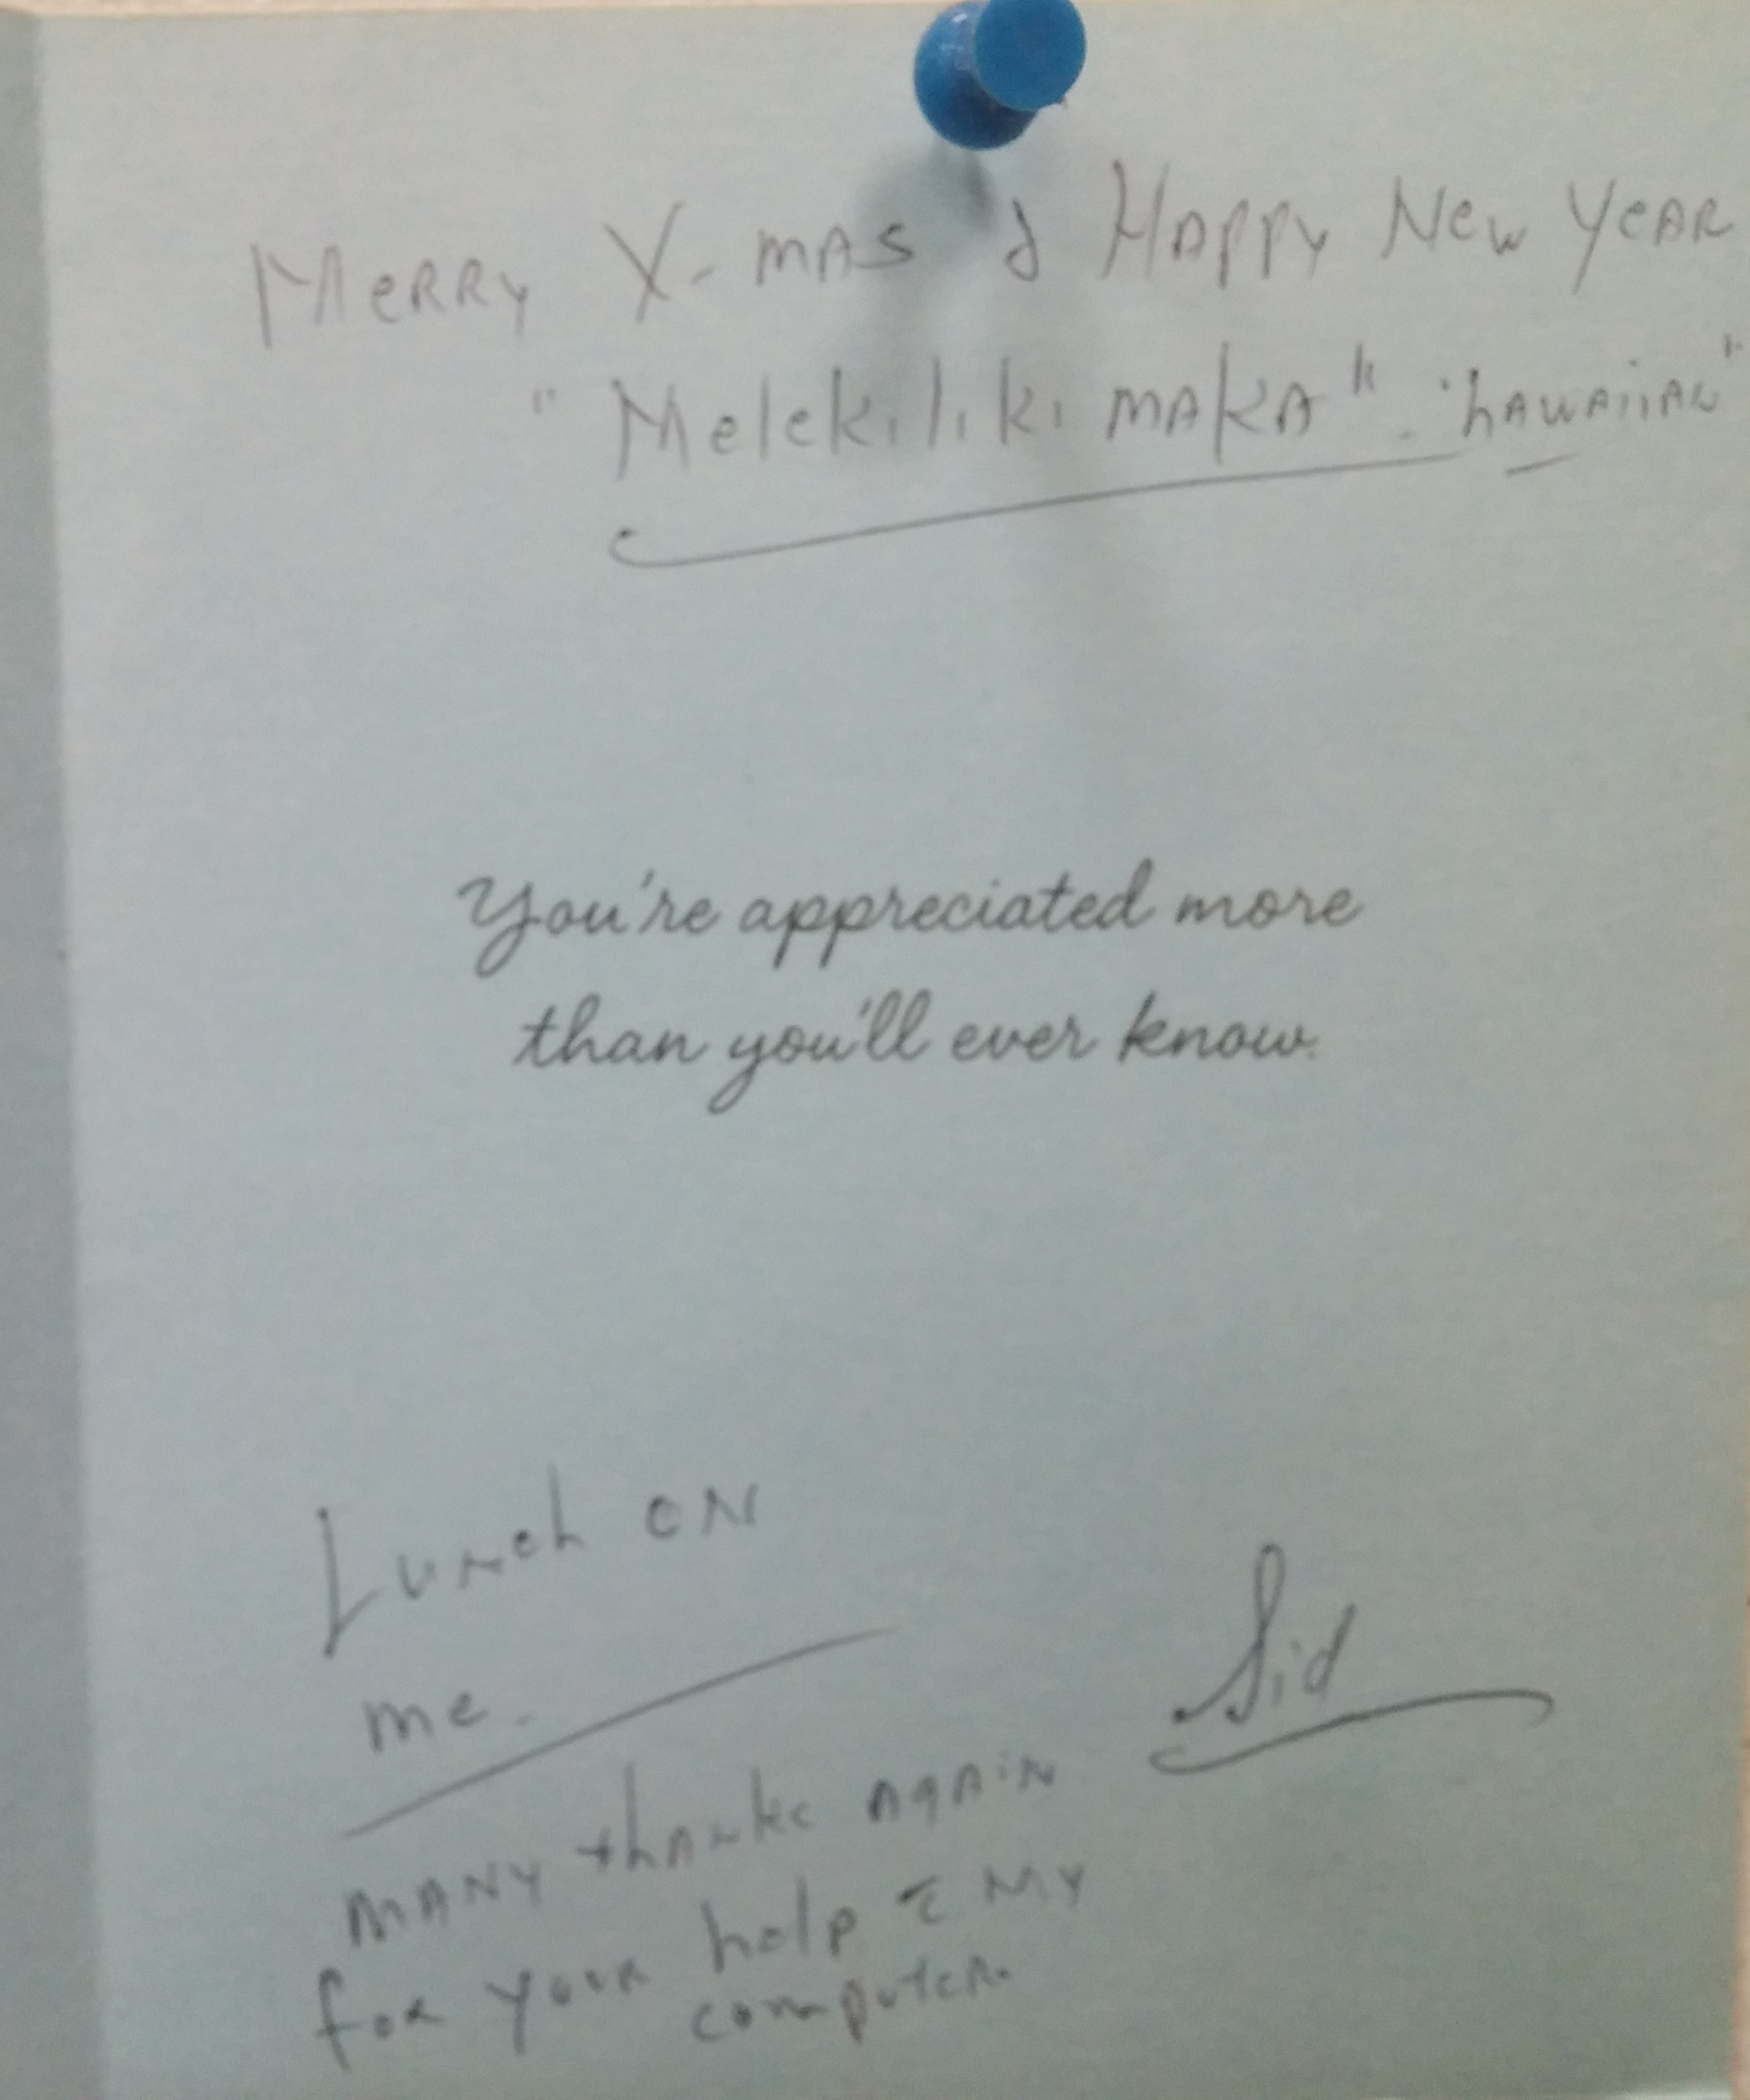 Merry X-mas & Happy New Year
"Melekiliki maka" - "hawaiian"
You're appreciated more
than you'll ever know.
Lunch on
me.
Sid
many thanks again
for your help c̄ my
computer.